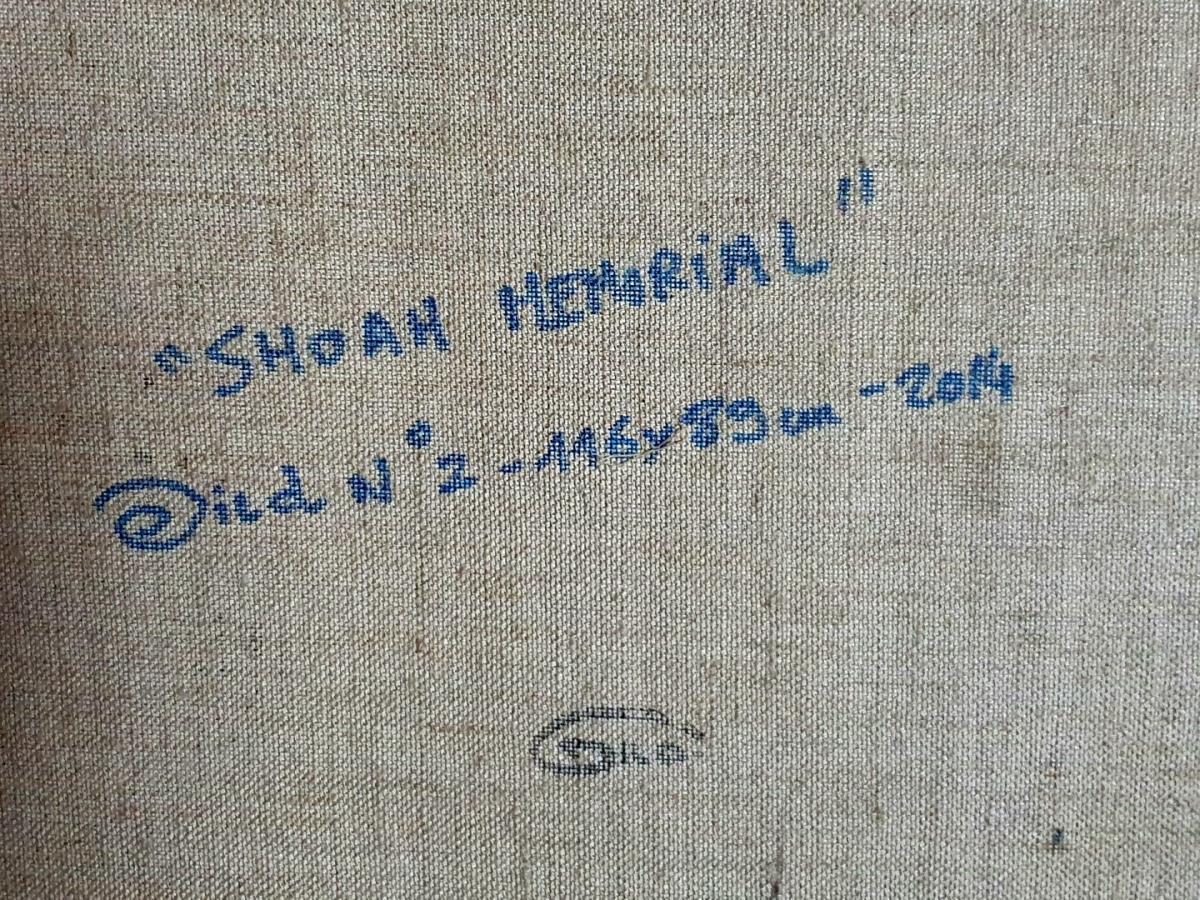 "SHOAH MEMORIAL"
Sild N°2 - 116x89cm - 2014
SILD